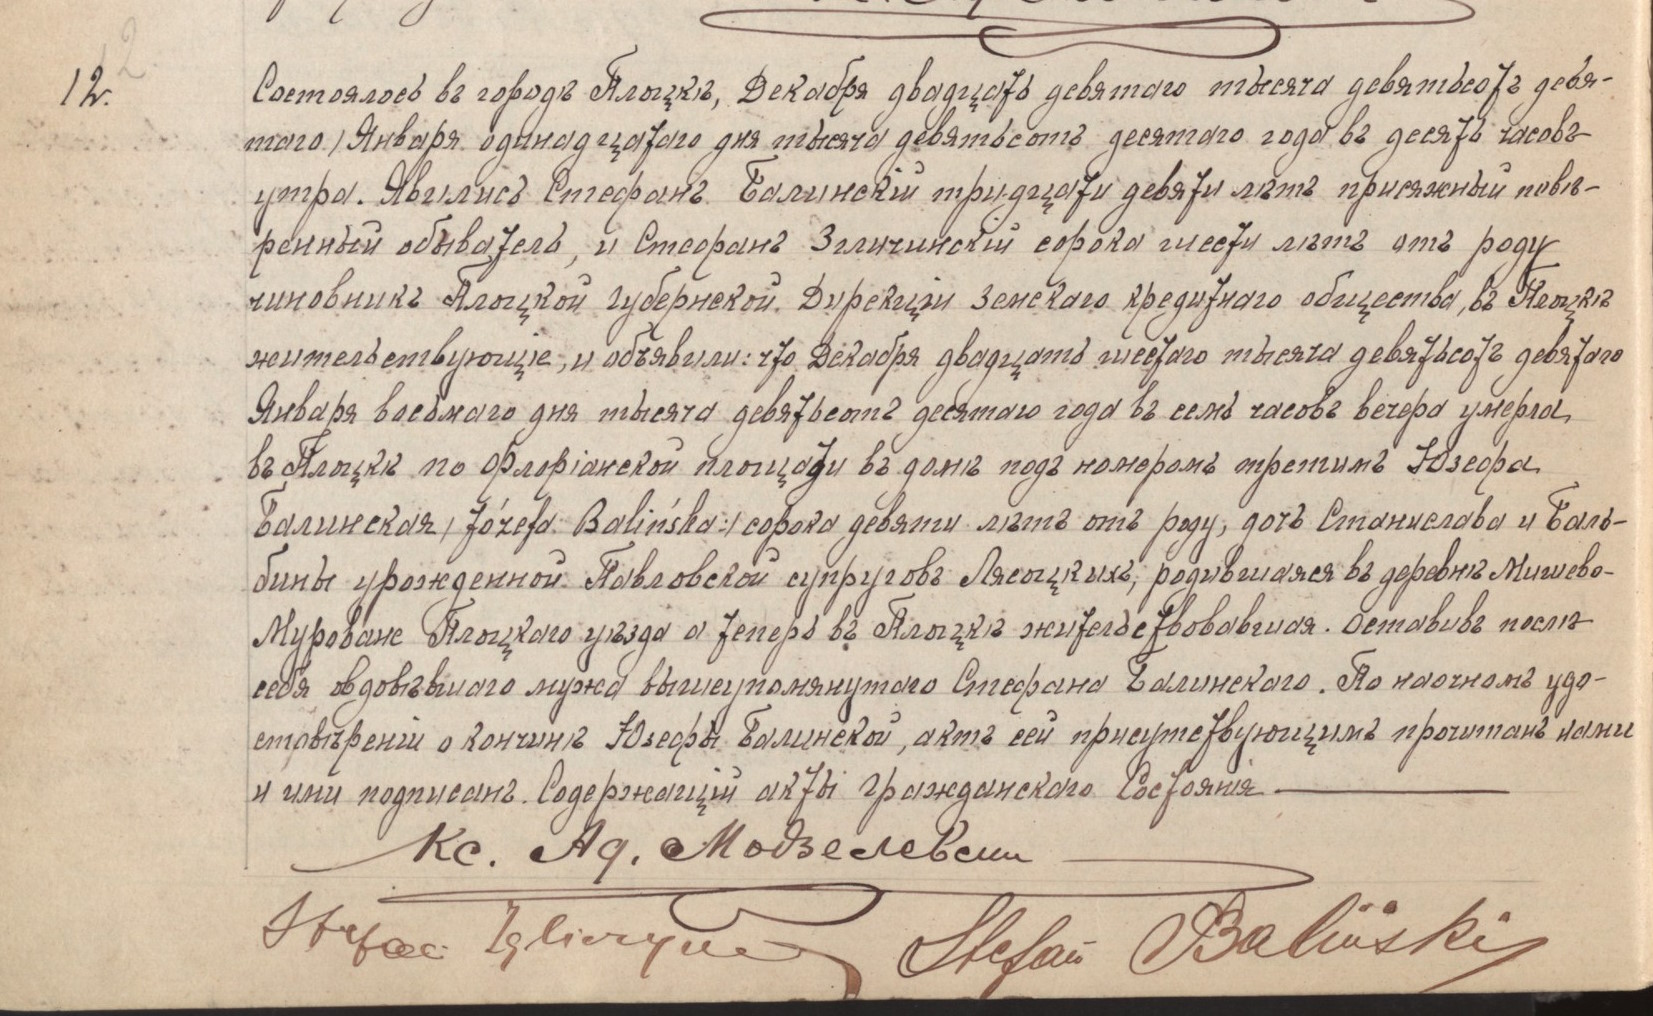 12.
Состоялось въ городѣ Плоцкѣ, Декабря двадцать девятаго тысяча девятьсотъ девя-
таго / Января одинадцатаго дня тысяча девятьсотъ десятаго года въ десять часовъ
утра. Явились Стефанъ Балинскій тридцати девяти лѣтъ присяжный повѣ-
ренный обыватель, и Стефанъ Згличинскій сорока шести лѣтъ отъ роду
чиновникъ Плоцкой Губернской Дирекціи Земскаго кредитнаго общества, въ Плоцкѣ
жительствующіе, и объявили: что Декабря двадцать шестаго тысяча девятьсотъ девятаго
Января восьмаго дня тысяча девятьсотъ десятаго года въ семь часовъ вечера умерла,
въ Плоцкѣ по Флоріанской площади въ домѣ подъ номеромъ третимъ Юзефа
Балинская / Józefa Balińska :/ сорока девяти лѣтъ отъ роду, дочь Станислава и Баль-
бины урожденной Павловской супруговъ Лясоцкихъ, родившаяся въ деревнѣ Мишево-
Мурованс Плоцкаго уѣзда а теперь въ Плоцкѣ жительствовавшая. Оставивъ послѣ
себя овдовѣвшаго мужа вышеупомянутаго Стефана Балинскаго. По наочномъ удо-
стовѣреніи о кончинѣ Юзефы Балинской, актъ сей присутствующимъ прочитанъ нами
и ими подписанъ. Содержащій акты Гражданскаго Состоянія
Кс. Ад. Модзелевски
Stefan Zgliczyński Stefan Baliński